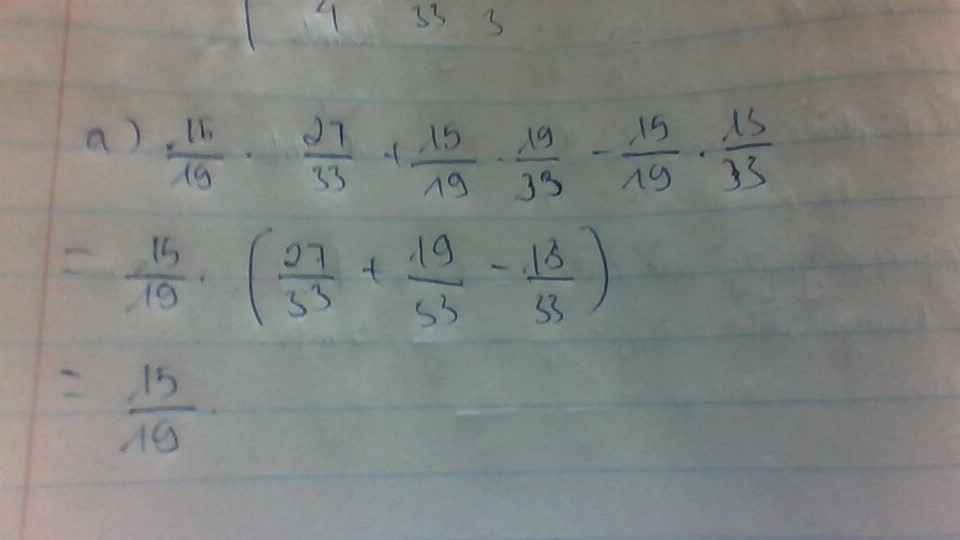 4 33 3
a) 15/19 · 27/33 + 15/19 · 19/33 - 15/19 · 13/33
= 15/19 · (27/33 + 19/33 - 13/33)
= 15/19 ·